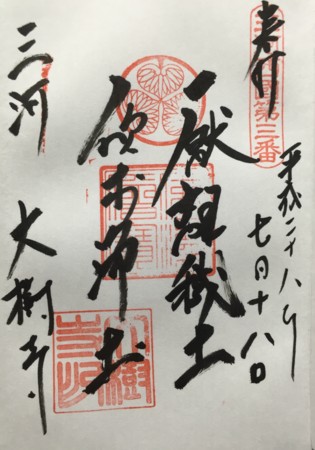 奉拝
第三番
平成二十八年
七月十八日
厭離穢土
欣求浄土
三河
大樹寺